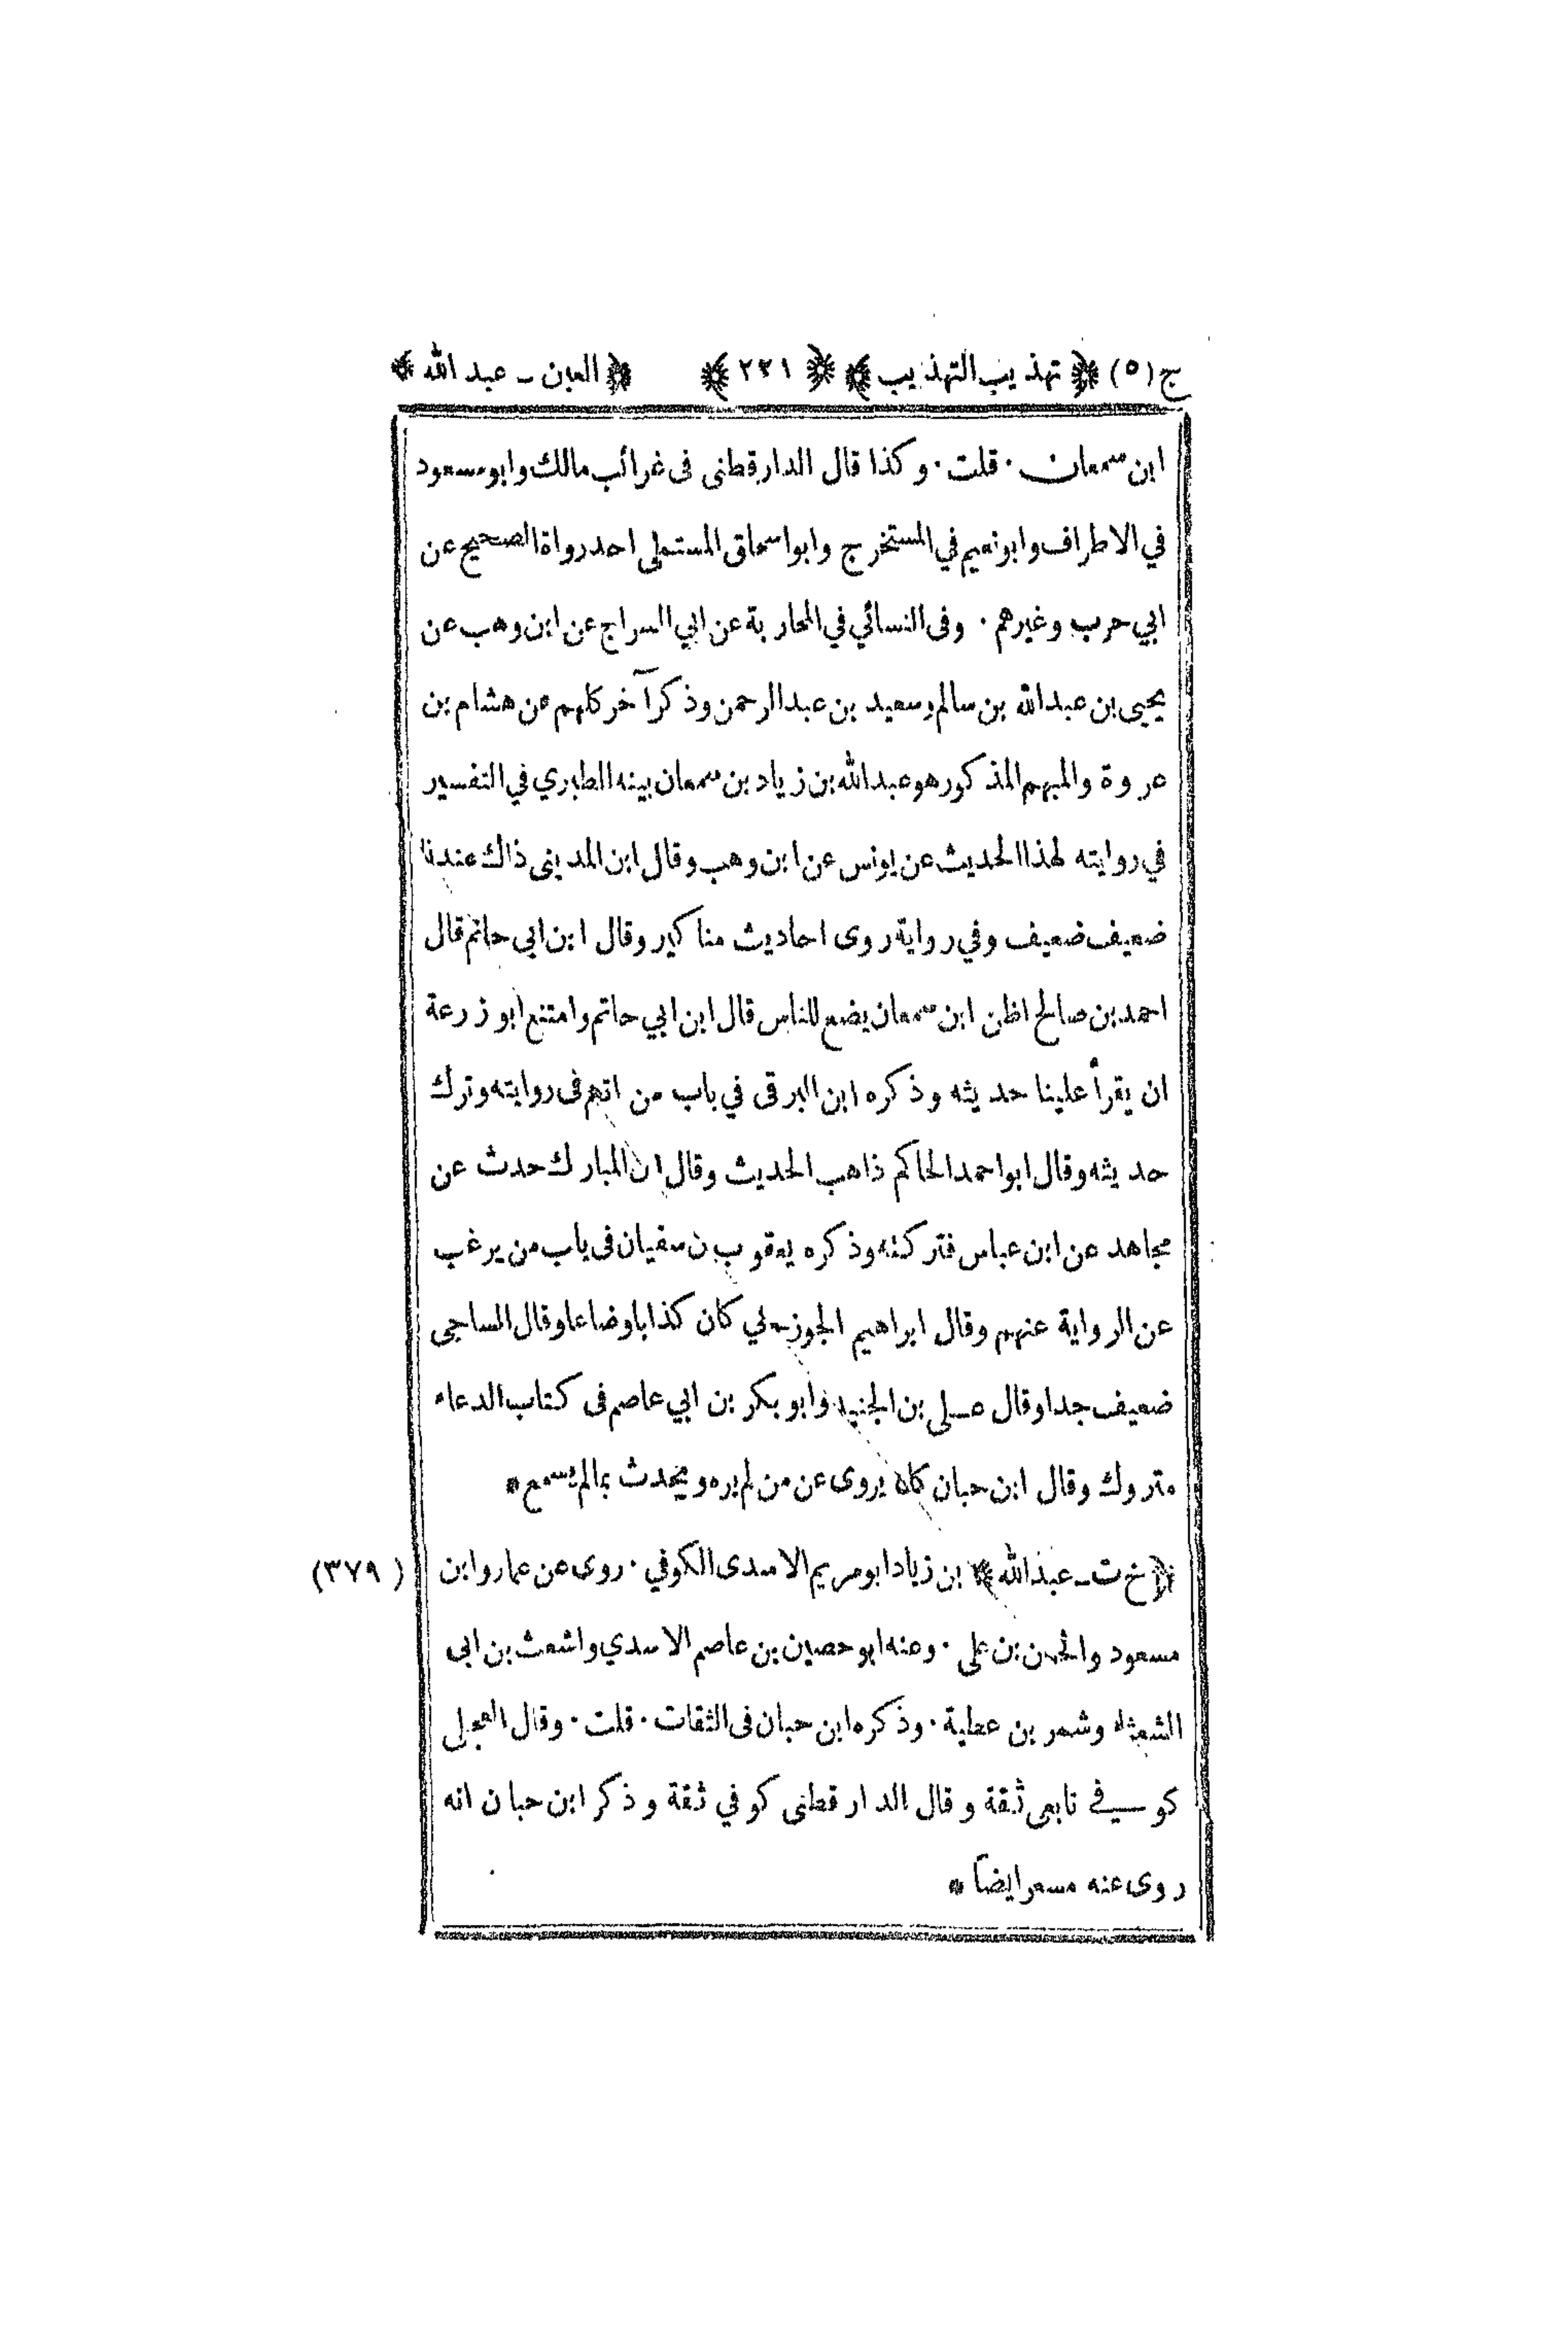 ج (٥) ﴿ تهذيب التهذيب ﴾ ﴿ ٢٢١ ﴾ ﴿ العين ـ عبد الله ﴾
ابن سمعان · قلت · وكذا قال الدارقطنى فى غرائب مالك وابو مسعود
في الاطراف وابو نعيم في المستخرج وابو اسحاق المستملى احد رواة الصحيح عن
ابي حرب وغيرهم · وفى النسائي في المحاربة عن ابي السراج عن ابن وهب عن
يحيى بن عبد الله بن سالم وسعيد بن عبد الرحمن وذكر آخر كلهم عن هشام بن
عروة والمبهم المذكور هو عبد الله بن زياد بن سمعان بينه الطبري في التفسير
في روايته لهذا الحديث عن يونس عن ابن وهب وقال ابن المدينى ذاك عندنا
ضعيف ضعيف وفي رواية روى احاديث مناكير وقال ابن ابي حاتم قال
احمد بن صالح اظن ابن سمعان يضع للناس قال ابن ابي حاتم وامتنع ابو زرعة
ان يقرأ علينا حديثه وذكره ابن البرقى في باب من اتهم فى روايته وترك
حديثه وقال ابو احمد الحاكم ذاهب الحديث وقال ان المبارك حدث عن
مجاهد عن ابن عباس فتركته وذكره يعقوب بن سفيان فى باب من يرغب
عن الرواية عنهم وقال ابراهيم الجوزجاني كان كذابا وضاعا وقال الساجى
ضعيف جدا وقال على بن الجنيد وابو بكر بن ابي عاصم فى كتاب الدعاء
متروك وقال ابن حبان كان يروى عن من لم يره ويحدث بمالم يسمع *
﴿ خ ت ـ عبد الله ﴾ بن زياد ابو مريم الاسدى الكوفي · روى عن عمار وابن (٣٧٩)
مسعود والحسن بن على · وعنه ابو حصين بن عاصم الاسدي واشعث بن ابى
الشعثاء وشمر بن عطية · وذكره ابن حبان فى الثقات · قلت · وقال العجلى
كوفي تابعى ثقة وقال الدارقطنى كوفي ثقة وذكر ابن حبان انه
روى عنه مسعر ايضاً *